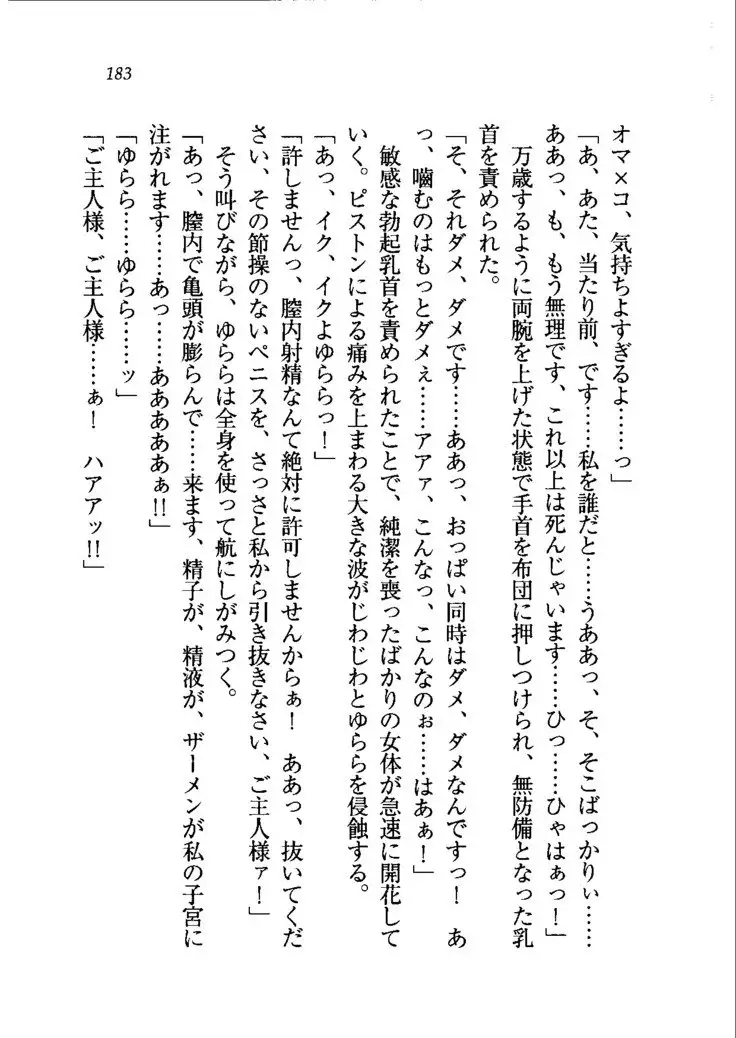 183
オマ×コ、気持ちよすぎるよ……っ」
「あ、あた、当たり前、です……私を誰だと……うああっ、そ、そこばっかりぃ……
ああっ、も、もう無理です、これ以上は死んじゃいます……ひっ……ひゃはぁっ！」
万歳するように両腕を上げた状態で手首を布団に押しつけられ、無防備となった乳
首を責められた。
「そ、それダメ、ダメです……ああっ、おっぱい同時はダメ、ダメなんですっ！　あ
っ、嚙むのはもっとダメぇ……アアァ、こんなっ、こんなのぉ……はあぁ！」
敏感な勃起乳首を責められたことで、純潔を喪ったばかりの女体が急速に開花して
いく。ピストンによる痛みを上まわる大きな波がじわじわとゆららを侵蝕する。
「あっ、イク、イクよゆららっ！」
「許しませんっ、膣内射精なんて絶対に許可しませんからぁ！　ああっ、抜いてくだ
さい、その節操のないペニスを、さっさと私から引き抜きなさい、ご主人様ァ！」
そう叫びながら、ゆららは全身を使って航にしがみつく。
「あっ、膣内で亀頭が膨らんで……来ます、精子が、精液が、ザーメンが私の子宮に
注がれます……あっ……あああああぁ!!」
「ゆらら……ゆらら……ッ」
「ご主人様、ご主人様……ぁ！　ハアアッ!!」